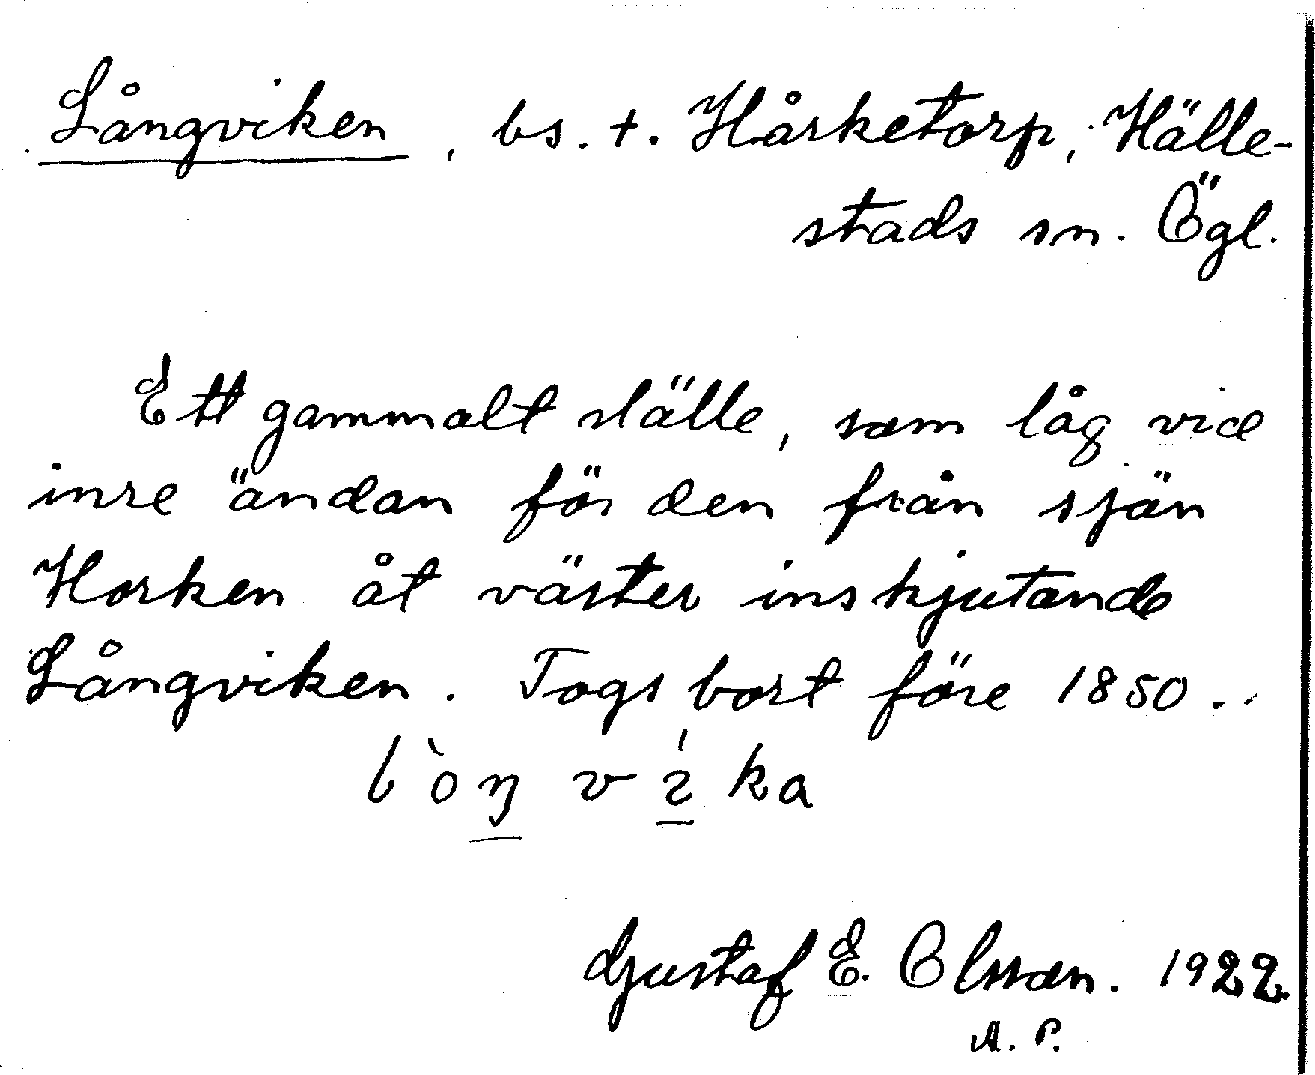 Långviken, bs. t. Hårketorp, Hälle-
stads sn. Ögl.
Ett gammalt ställe, som låg vid
inre ändan för den från sjön
Horken åt väster inskjutande
Långviken. Togs bort före 1850.
lòŋ víka
Gustaf E. Olsson. 1922.
A. P.